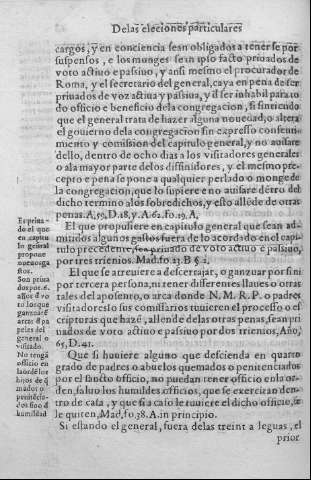 De las eleciones particulares
cargos, y en conciencia sean obligados a tenerse por
suspensos, e los monges sean ipso facto priuados de
voto actiuo e passiuo, y ansi mesmo el procurador de
Roma, y el secretario del general, caya en pena de ser
priuados de voz actiua y passiua, y d'ser inhabil para to
do officio e beneficio dela congregacion, si sintiendo
que el general trata de hazer alguna nouedad, o altera
el gouierno dela congregacion sin expresso consenti
miento y comission del capitulo general, y no auisare
dello, dentro de ocho dias a los visitadores generales
o ala mayor parte delos diffinidores, y el mesmo pre
cepto e pena se pone a qualquier perlado o monge de
la congregacion, que lo supiere e no auisare détro del
dicho termino alos sobredichos, y esto allêde de otras
penas. A, 59, D. 18, y A. 62. fo. 19. A,
El que propusiere en capitulo general que sean ad-
mitidos algunos gastos fuera de lo acordado en el capi
tulo precedente, sea priuado de voto actiuo e passiuo,
por tres trienios. Mad. fo. 23. B §. 2,
El que se atreuiere a descerrajar, o ganzuar por si ni
por tercera persona, ni tener differentes llaues o otras
tales del aposento, o arca donde N. M. R. P. o padres
visitadores o sus comissarios tuuieren el processo o es
cripturas que assi hazen, allende delas otras penas, sean pri
uados de voto actiuo e passiuo por dos trienios, Año,
65, D. 41.
Que si huuiere alguno que descienda en quarto
grado de padres o abuelos quemados o penitenciados
por el sancto officio, no puedan tener officio en la or-
den, saluo los humildes officios, que se exercitan den-
tro de casa, y que si a caso le tuuiere el dicho officio, se
le quiten, Mad, fo. 38. A. in principio.
Si estando el general, fuera delas treinta leguas, el
prior
Es priua-
do el que
en capitu
lo general
propone
nueuos ga
stos.
Son priua
dos por. 6.
años d'vo
to los que
ganzuarē
arcas d'pa
peles del
general o
visitado.
No tenga
officio en
la ordē los
hijos de q̄
mados o
penitēcia-
dos sino d'
humildad